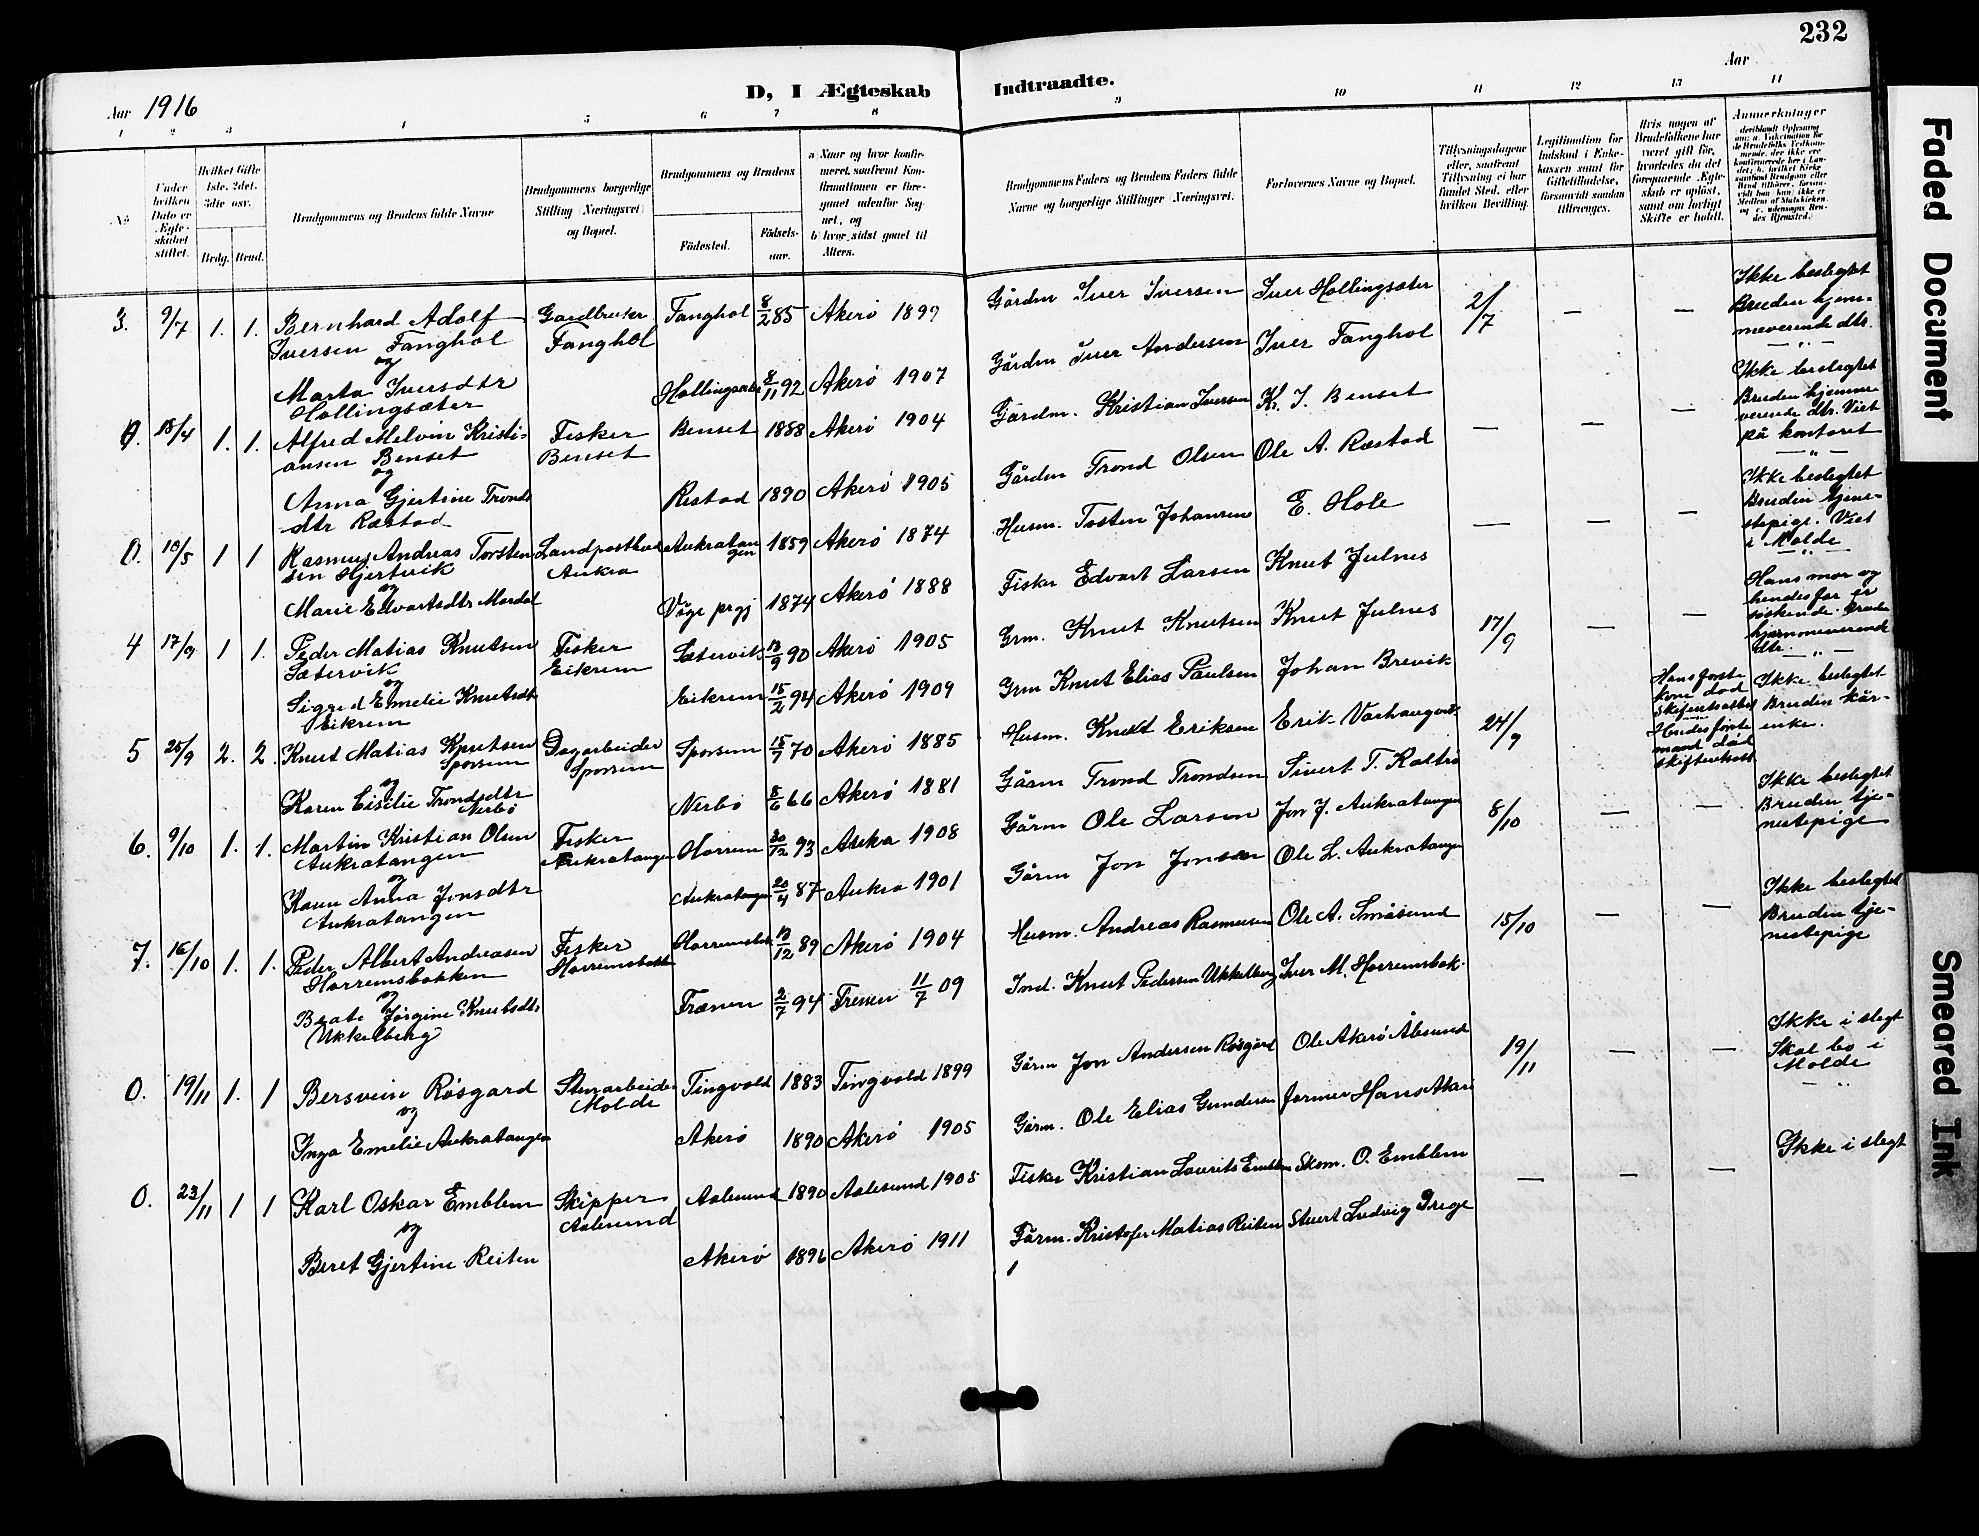 232
Aar 1916
D, I Ægteskab Indtraadte.
Aar
1 2 3 4 5 6 7 8 9 10 11 12 13 14
No
Under hvilken Dato er Ægteskabet stiftet.
Hvilket Gifte 1ste, 2det, 3die osv.
Brdg. Brud.
Brudgommens og Brudens fulde Navne
Brudgommens borgerlige Stilling (Næringsvei) og Bopæl.
Brudgommens og Brudens
Födested.
Födselsaar.
a Naar og hvor konfirmeret, saafremt Konfirmationen er foregaaet udenfor Sognet, og
b hvor sidst gaaet til Alters.
Brudgommens Faders og Brudens Faders fulde Navne og borgerlige Stillinger (Næringsvei.
Forlovernes Navne og Bopæl.
Tillysningsdagene eller, saafremt Tillysning ei har fundet Sted, efter hvilken Bevilling.
Legitimation for Indskud i Enkekassen samt for Giftetilladelse, forsaavidt saadan tiltrænges.
Hvis nogen af Brudefolkene har været gift før, hvorledes da det foregaaende Ægteskab er opløst, samt om lovligt Skifte er holdt.
Anmerkninger
3. 9/7 1. 1. Bernhard Adolf Gardbruker Tanghol 8/2 85 Akerö 1899 Gårdm Iver Iversen Iver Hollingsæter 2/7 — — Ikke beslegtet
Iversen Tanghol Tanghol Bruden hjem-
og meværende dtr.
Marta Iversdtr Hollingsæter 8/11 92 Akerö 1907 Gårdm Iver Andersen Iver Tanghol
Hollingsæter
0. 18/4 1. 1. Alfred Melvin Kristi- Fisker Benset 1888 Akerö 1904 Gårdm. Kristian Iversen K. I. Benset — — — Ikke beslegtet
ansen Benset Benset Bruden hjemme-
og værende dtr. Viet
Anna Gjertine Tronds Restad 1890 Akerö 1905 Gårdm Trond Olsen Ole A. Ræstad på kontoret
dtr Ræstad
0. 10/5 1 1 Rasmus Andreas Torsten Landpostbud Aukratangen 1859 Akerö 1874 Husm. Tosten Johansen E. Hole — — — Ikke beslegtet
sen Hjertvik Aukra Bruden tjene-
og stepige. Viet
Marie Edvartsdtr Mordal Våge prgj 1874 Akerö 1888 Fisker Edvart Larsen Knut Julnes i Molde
4 17/9 1 1. Peder Matias Knutsen Fisker Sætervik 13/9 90 Akerö 1905 Grm. Knut Knutsen Knut Julnes 17/9 — — Hans mor og
Sætervik Eikrem hendes far er
og søskende. Bruden
Sigrid Emelie Knutsdtr Eikrem 15/2 94 Akerö 1909 Grm Knut Elias Paulsen Johan Brevik hjemmeværende
Eikrem dtr.
5 25/9 2. 2. Knut Matias Knutsen Dagarbeider Sporsem 15/7 70 Akerö 1885 Husm. Knut Eriksen Erik Varhaugvik 24/9 Hans første kone død Ikke beslegtet
Sporsem Sporsem Bruden kår-
og Hendes første mand død enke.
Karen Eiselie Trondsdtr Nerbö 8/6 66 Akerö 1881 Gårm Trond Trondsen Sivert T. Raknö
Nerbö
6. 9/10 1. 1. Martin Kristian Olsen Fisker Horrem 30/12 93 Aukra 1908 Gårm Ole Larsen Jon J. Aukratangen 8/10 — — Ikke beslegtet
Aukratangen Aukratangen Bruden tje-
og nestepige
Karen Anna Jonsdtr Aukratangen 20/4 87 Aukra 1901 Gårm Jon Jonsen Ole L. Aukratangen
Aukratangen
7. 16/10 1. 1. Peder Albert Andreasen Fisker Horremsbak 13/12 89 Akerö 1904 Husm. Andreas Rasmusen Ole A. Småsund 15/10 — — Ikke beslegtet
Horremsbakken Horremsbakk Bruden tje-
og nestepige
Beate Jørgine Knutsdtr Frænen 2/7 94 Frenen 11/7 09 Ind. Knut Pedersen Ukkelberg Iver M. Horremsbak.
Ukkelberg
0. 19/11 1. 1 Bersvein Rösgard Stenarbeider Tingvold 1883 Tingvold 1899 Gårm Jon Andersen Rösgård Ole Akerö Ålesund 19/11 — — Ikke i slegt
og Molde Skal bo i
Inga Emelie Aukratangen Akerö 1890 Akerö 1905 Gårm. Ole Elias Gundersen former Hans Aker Molde
0. 23/11 1 1 Karl Oskar Emblem Skipper Aalesund 1890 Aalesund 1905 Fisker Kristian Laurits Emblem Skom. O. Emblem — — — Ikke i slegt
og Aalesund
Beret Gjertine Reiten Akerö 1896 Akerö 1911 Gårm. Kristofer Matias Reiten Stuert Ludvig Drege
Faded Document
Smeared Ink